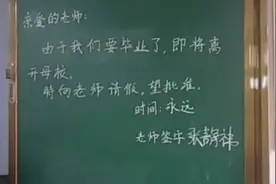 亲爱的老师:
由于我们要毕业了,即将离
开母校。
特向老师请假,望批准。
时间:永远
老师签字